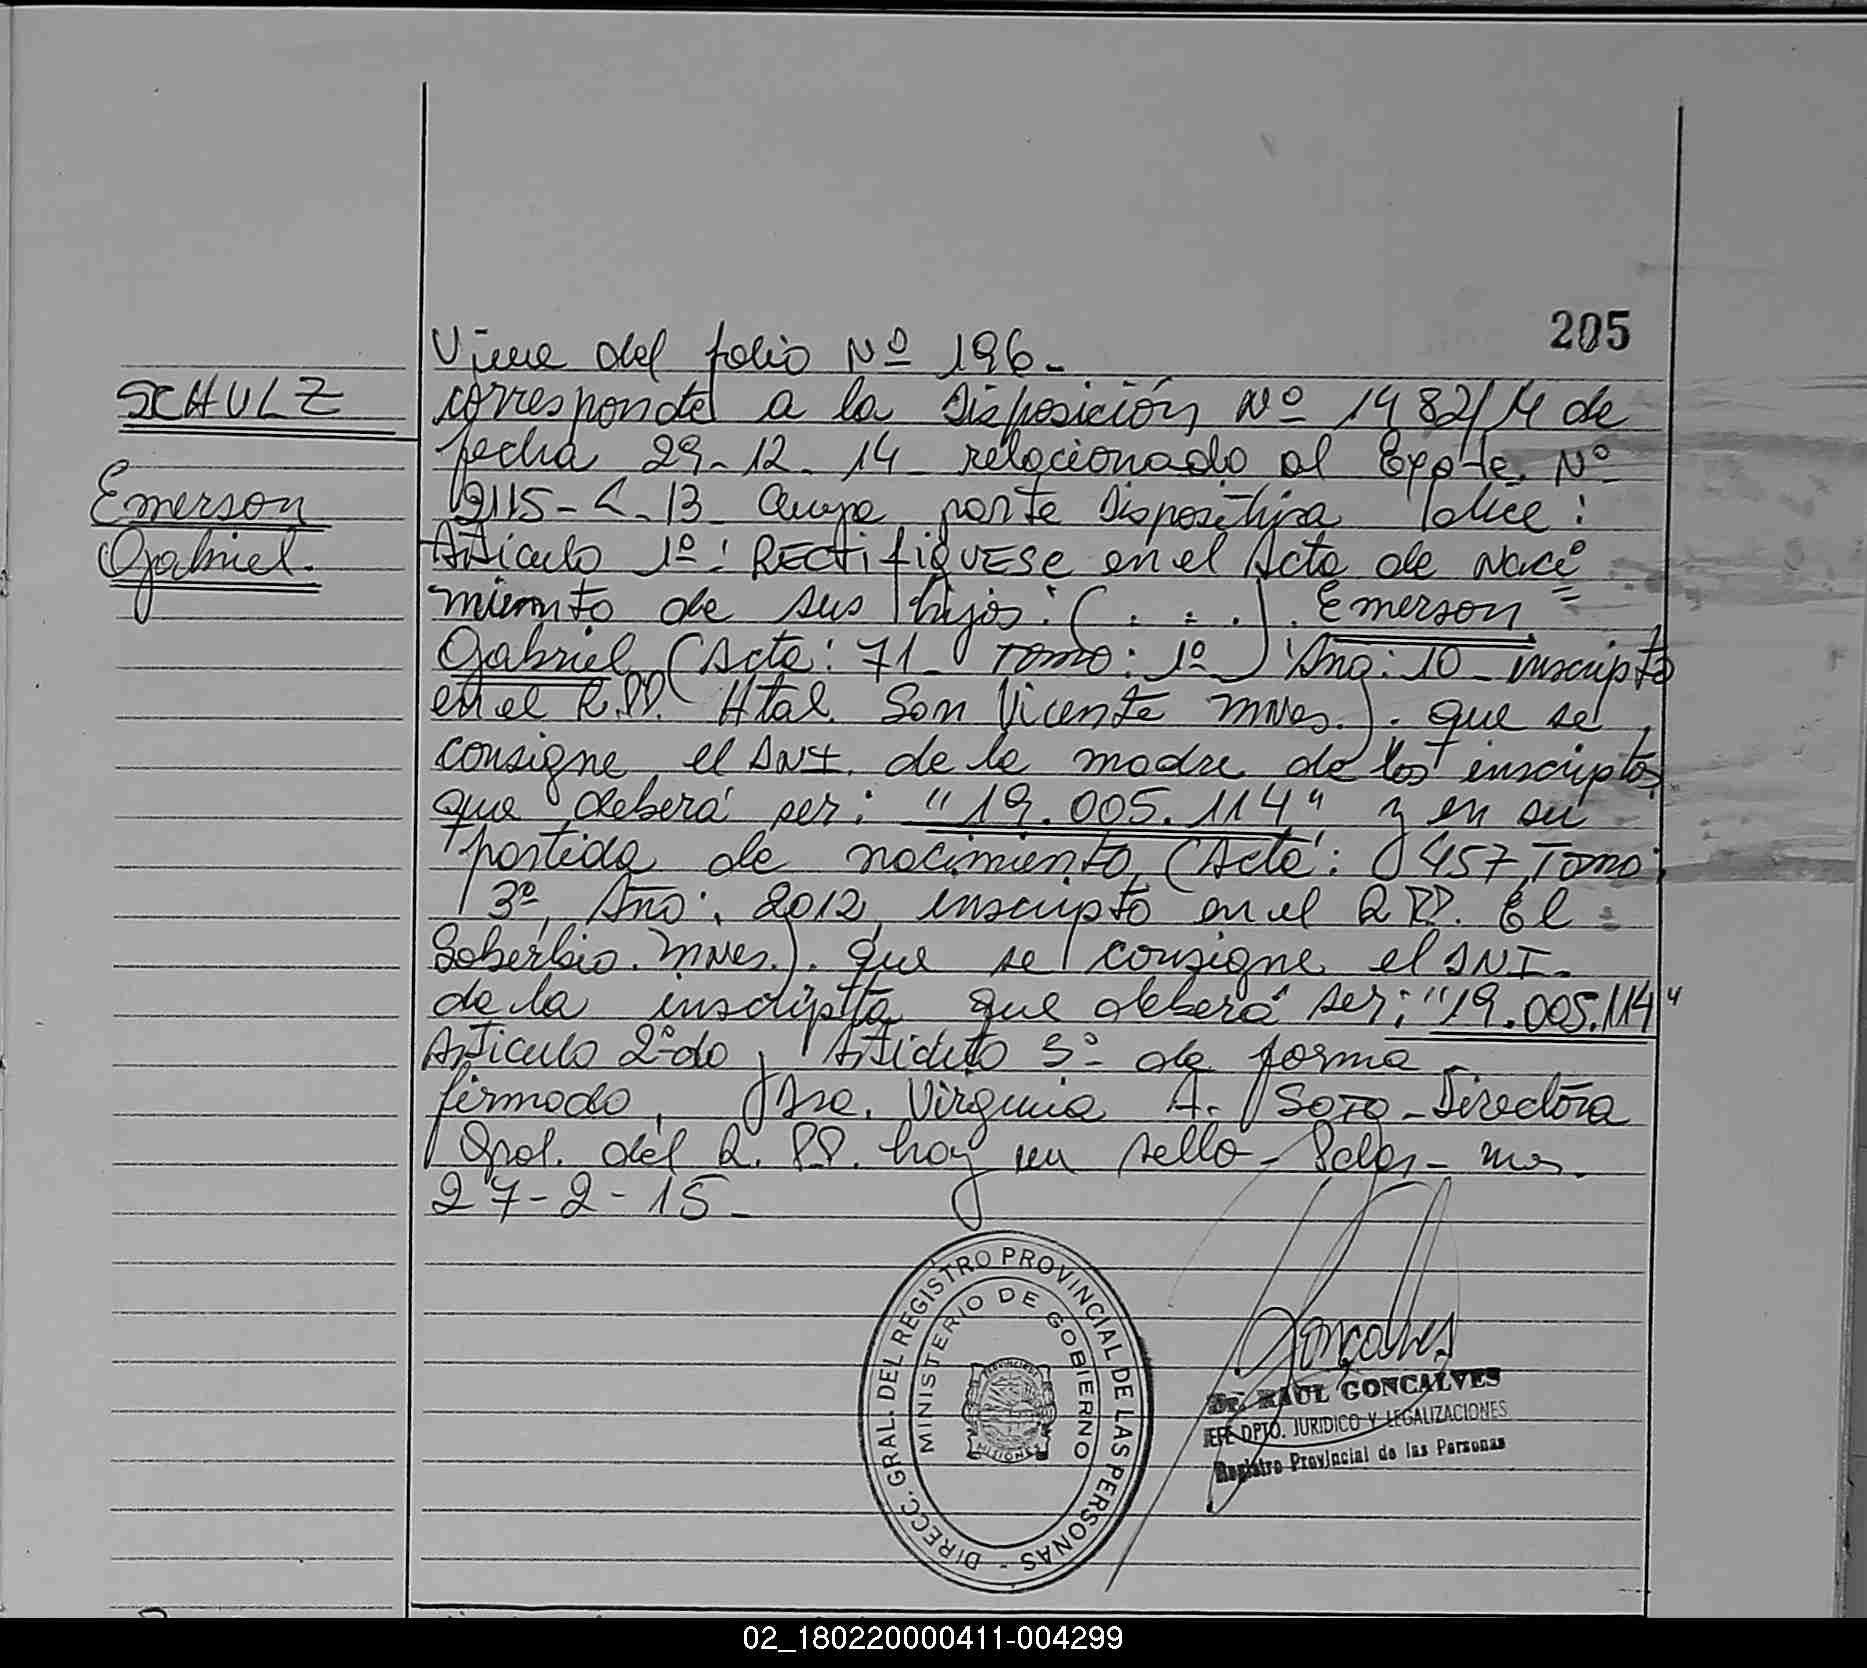 205
Viene del folio Nº 196-
SCHULZ
corresponde a la Disposición Nº 1982/14 de
fecha 29-12-14 relacionado al Expte. Nº
Emerson
2115-L-13 cuya parte dispositiva dice:
Gabriel.
Artículo 1º: RECtifiQUESE en el Acta de Naci
miento de sus hijos: (...). Emerson
Gabriel (Acta: 71 Tomo: 1º Año: 10 - inscripto
en el R.PP. Htal. San Vicente Mnes.). que se
consigne el DNI. de la madre de los inscriptos
que deberá ser: "19.005.114" y en su
partida de nacimiento (Acta: 457, Tomo:
3º, Año: 2012, inscripto en el R PP. El
Soberbio. Mnes.). que se consigne el DNI.
de la inscripta que deberá ser: "19.005.114"
Artículo 2º do, Artículo 3º de forma
firmado, Dra. Virginia A. Soto - Directora
Gral. del R. PP. hay un sello - Pdas - Mnes.
27-2-15-
DIRECC. GRAL. DEL REGISTRO PROVINCIAL DE LAS PERSONAS -
MINISTERIO DE GOBIERNO
MISIONES
Goncalves
Dr. RAUL GONCALVES
JEFE DPTO. JURIDICO Y LEGALIZACIONES
Registro Provincial de las Personas
02_180220000411-004299